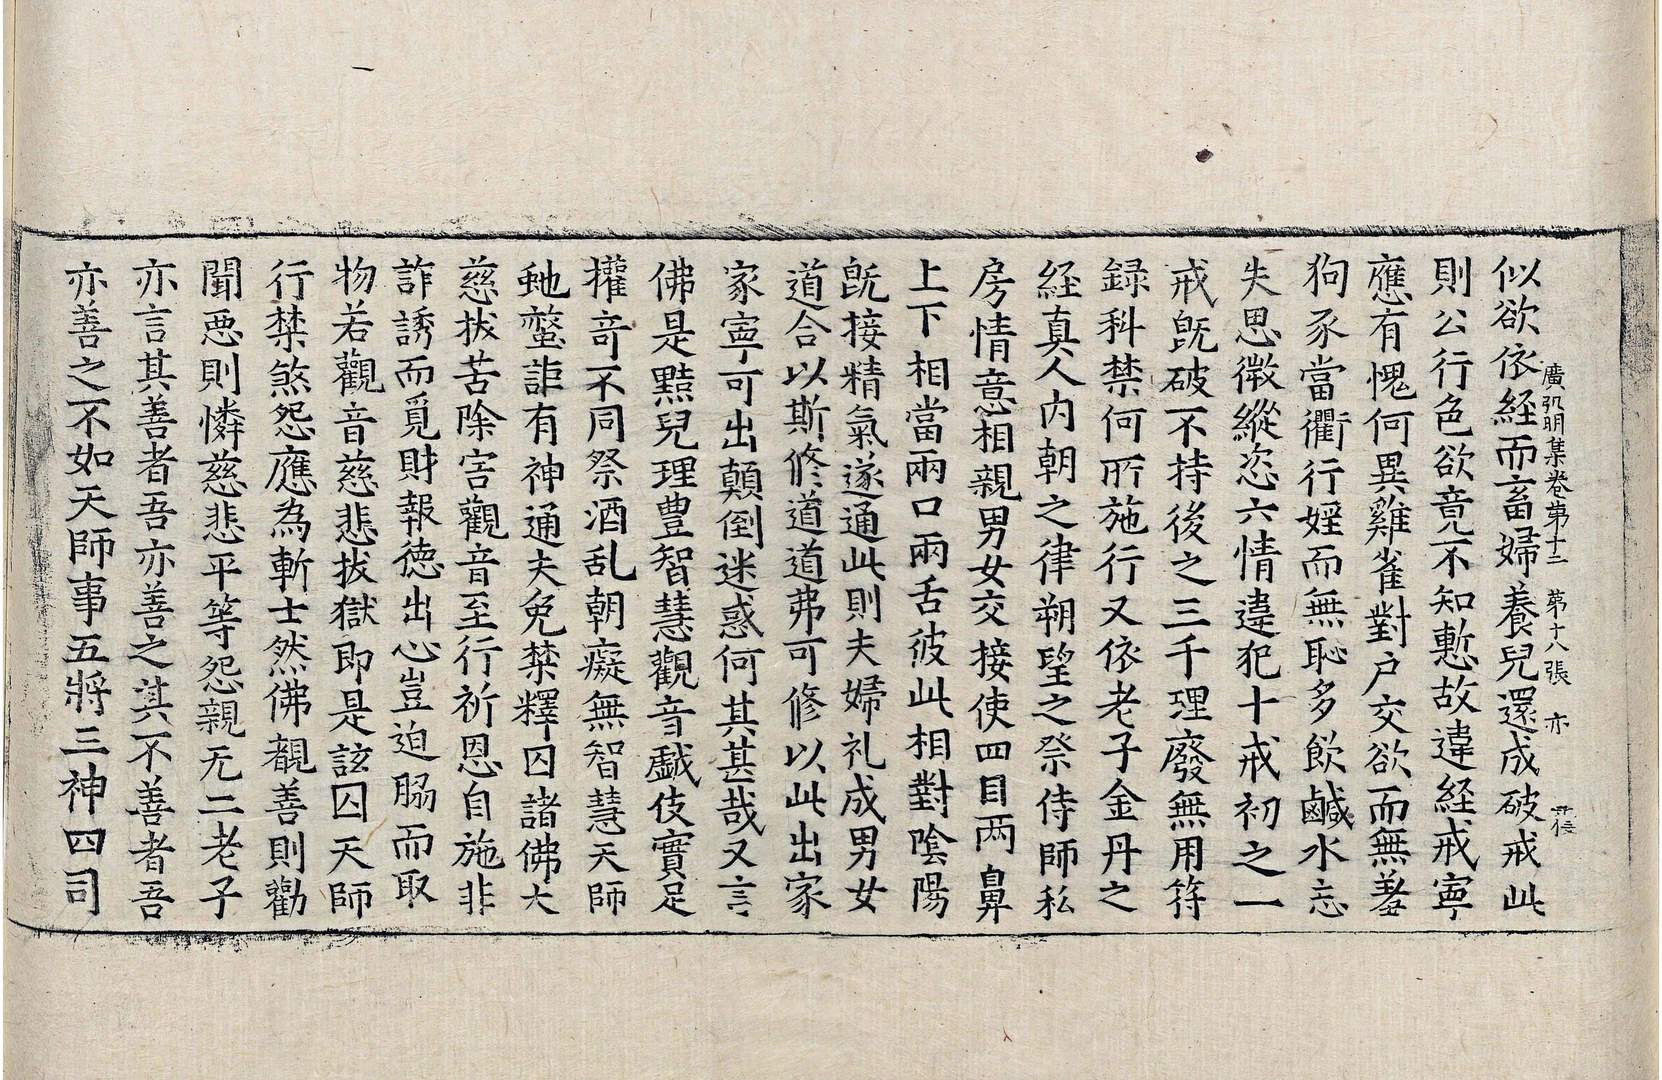 似欲依経而畜婦養兒還成破戒此
廣弘明集卷第十二　第十八張　亦
則公行色欲竟不知慙故違経戒寧
應有愧何異雞雀對户交欲而無羞
狗豕當衢行婬而無恥多飲鹹水忘
失思微縱恣六情違犯十戒初之一
戒旣破不持後之三千理廢無用符
録科禁何所施行又依老子金丹之
経真人内朝之律朔望之祭侍師私
房情意相親男女交接使四目两鼻
上下相當兩口兩舌彼此相對陰陽
旣接精氣遂通此則夫婦礼成男女
道合以斯修道道弗可修以此出家
家寧可出顛倒迷惑何其甚哉又言
佛是黠兒理豊智慧觀音戱伎實足
權竒不同祭酒乱朝癡無智慧天師
虵螫詎有神通夫免禁釋囚諸佛大
慈拔苦除害觀音至行祈恩自施非
詐誘而覓財報德出心豈迫脇而取
物若觀音慈悲拔獄即是該囚天師
行禁煞怨應為斬士然佛覩善則勸
聞惡則憐慈悲平等怨親无二老子
亦言其善者吾亦善之其不善者吾
亦善之不如天師事五將三神四司